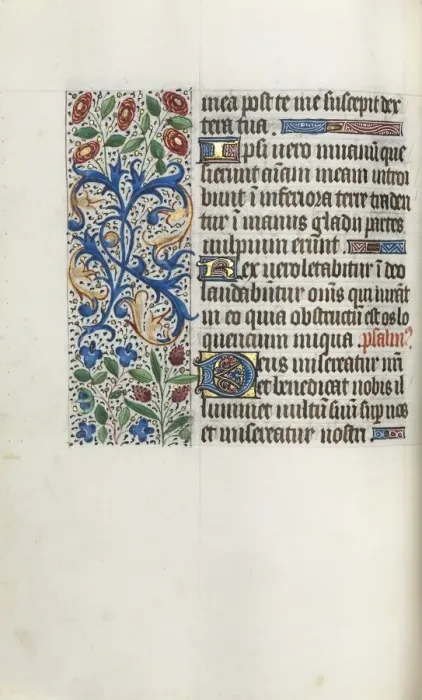 mea post te me suscepit dex
tera tua.
Ipsi vero in vanū que
sierunt aīam meam introi
bunt ī inferiora terre traden
tur ī manus gladii partes
vulpium erunt.
Rex vero letabitur ī deo
laudabūtur om̄s qui iurāt
in eo quia obstructū est os lo
quentium iniqua. psalm⁹.
Deus misereatur n̄ri
et benedicat nobis il
luminet vultū suū sup nos
et misereatur nostri.